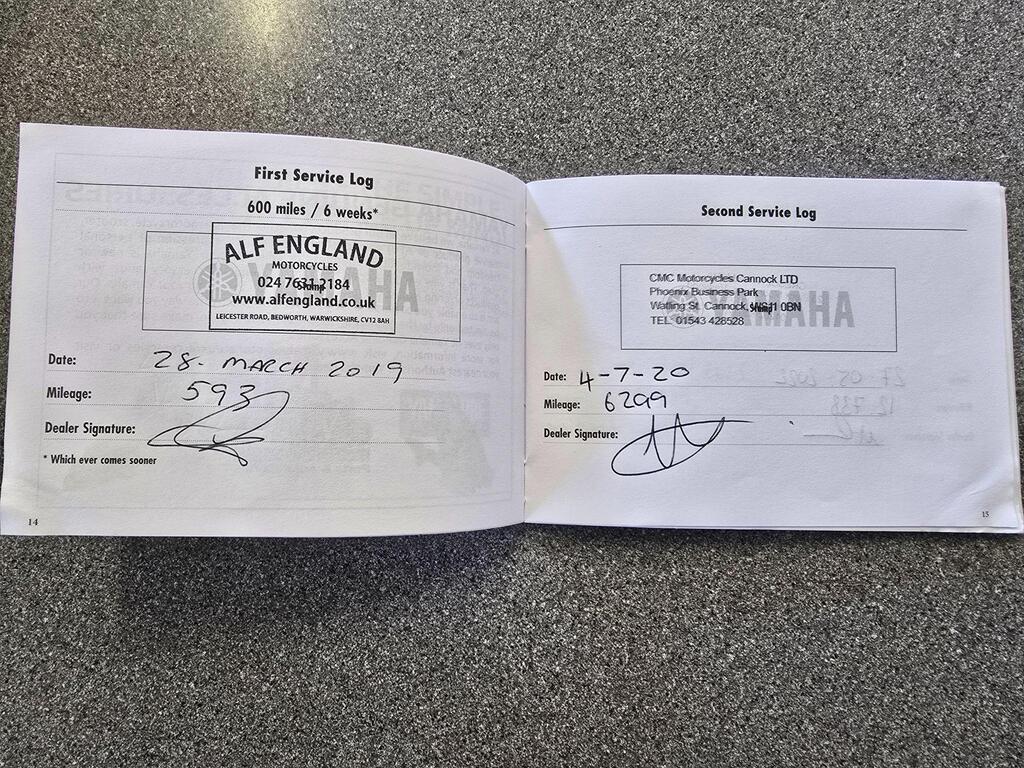 First Service Log
600 miles / 6 weeks*
ALF ENGLAND
MOTORCYCLES
024 7631 2184
Stamp
www.alfengland.co.uk
LEICESTER ROAD, BEDWORTH, WARWICKSHIRE, CV12 8AH
YAMAHA
Date: 28. MARCH 2019
Mileage: 593
Dealer Signature:
* Which ever comes sooner
14
Second Service Log
CMC Motorcycles Cannock LTD
Phoenix Business Park
Watling St. Cannock, WS11 0BN
Stamp
TEL: 01543 428528
YAMAHA
Date: 4-7-20
Mileage: 6299
Dealer Signature:
15